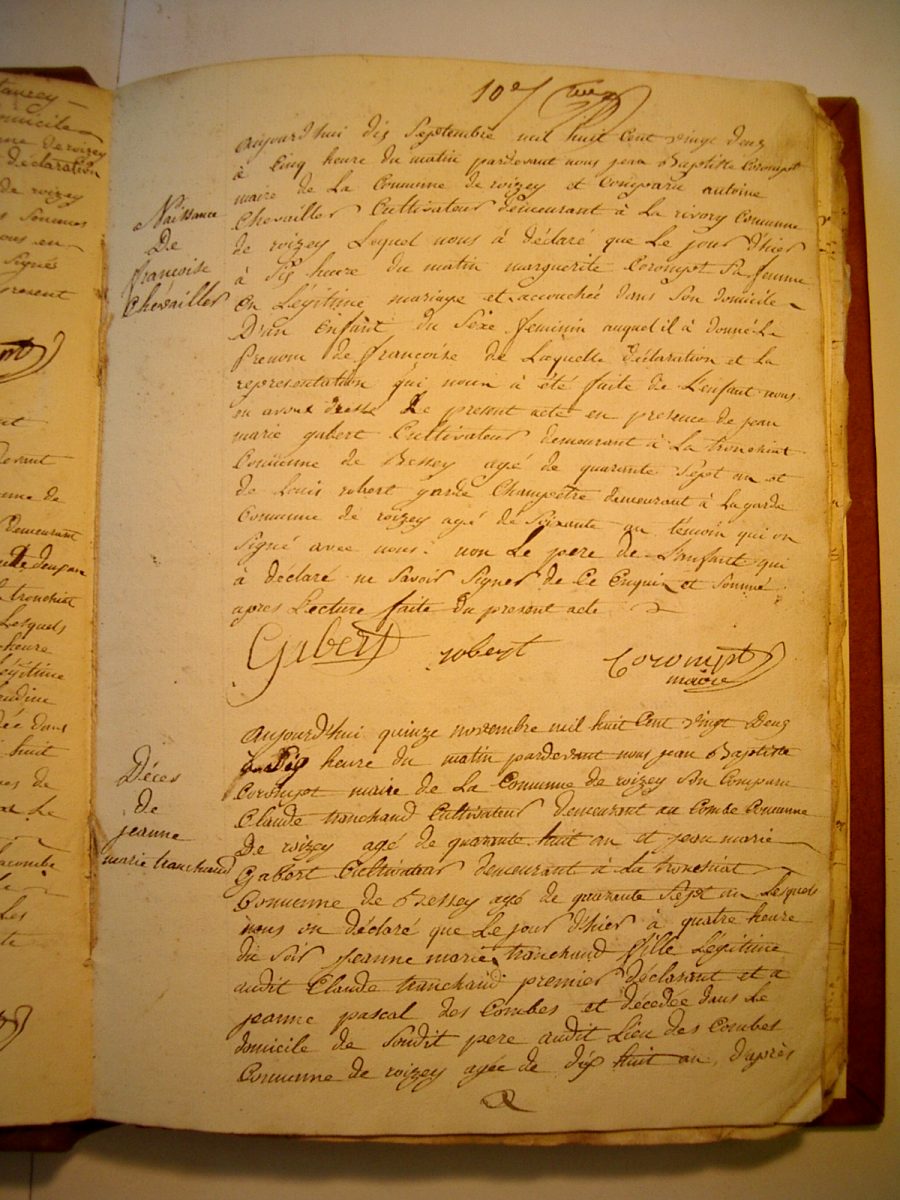 10e
aujourd'hui dix Septembre mil huit Cent vingt deux
à Cinq heure du matin pardevant nous jean Baptiste Corompt
maire de La Commune de roizey et Comparu antoine
Chevailler Cultivateur demeurant à La rivory Commune
de roizey Lequel nous à déclaré que Le jour d'hier
à Six heure du matin marguerite Corompt Sa femme
en Légitime mariage et accouchée dans Son domicile
D'un Enfant du Sexe feminin auquel il à donné Le
Prenom de françoise de Laquelle déclaration et La
representation qui nous à été faite de L'enfant nous
en avons dressé Le present acte en presence de jean
marie gabert Cultivateur demeurant à La tronchiat
Commune de Bessey agé de quarante Sept an et
de Louis robert garde Champetre demeurant à La garde
Commune de roizey agé de Soixante an témoin qui on
Signé avec nous. non Le pere de L'enfant qui
à déclaré ne Savoir Signer de Ce Enquis et Sommé
apres Lecture faite du present acte
Naissance
De
françoise
Chevailler
Gabert robert Corompt
maire
aujourd'hui quinze novembre mil huit Cent vingt Deux
à Dix heure du matin pardevant nous jean Baptiste
Corompt maire de La Commune de roizey On Comparu
Claude tranchand Cultivateur demeurant au Combe Commune
De roizey agé de quarante huit an et jean marie
Gabert Cultivateur demeurant à La tronchiat
Commune de Bessey agé de quarante Sept an Lesquels
nous on déclaré que Le jour d'hier a quatre heure
du Soir jeanne marie tranchand fille Légitime
audit Claude tranchand premier déclarant et a
jeanne pascal des Combes et décedée dans Le
domicile de Soudit pere audit Lieu des Combes
Commune de roizey agée de dix huit an, d'après
Déces
de
jeanne
marie tranchand